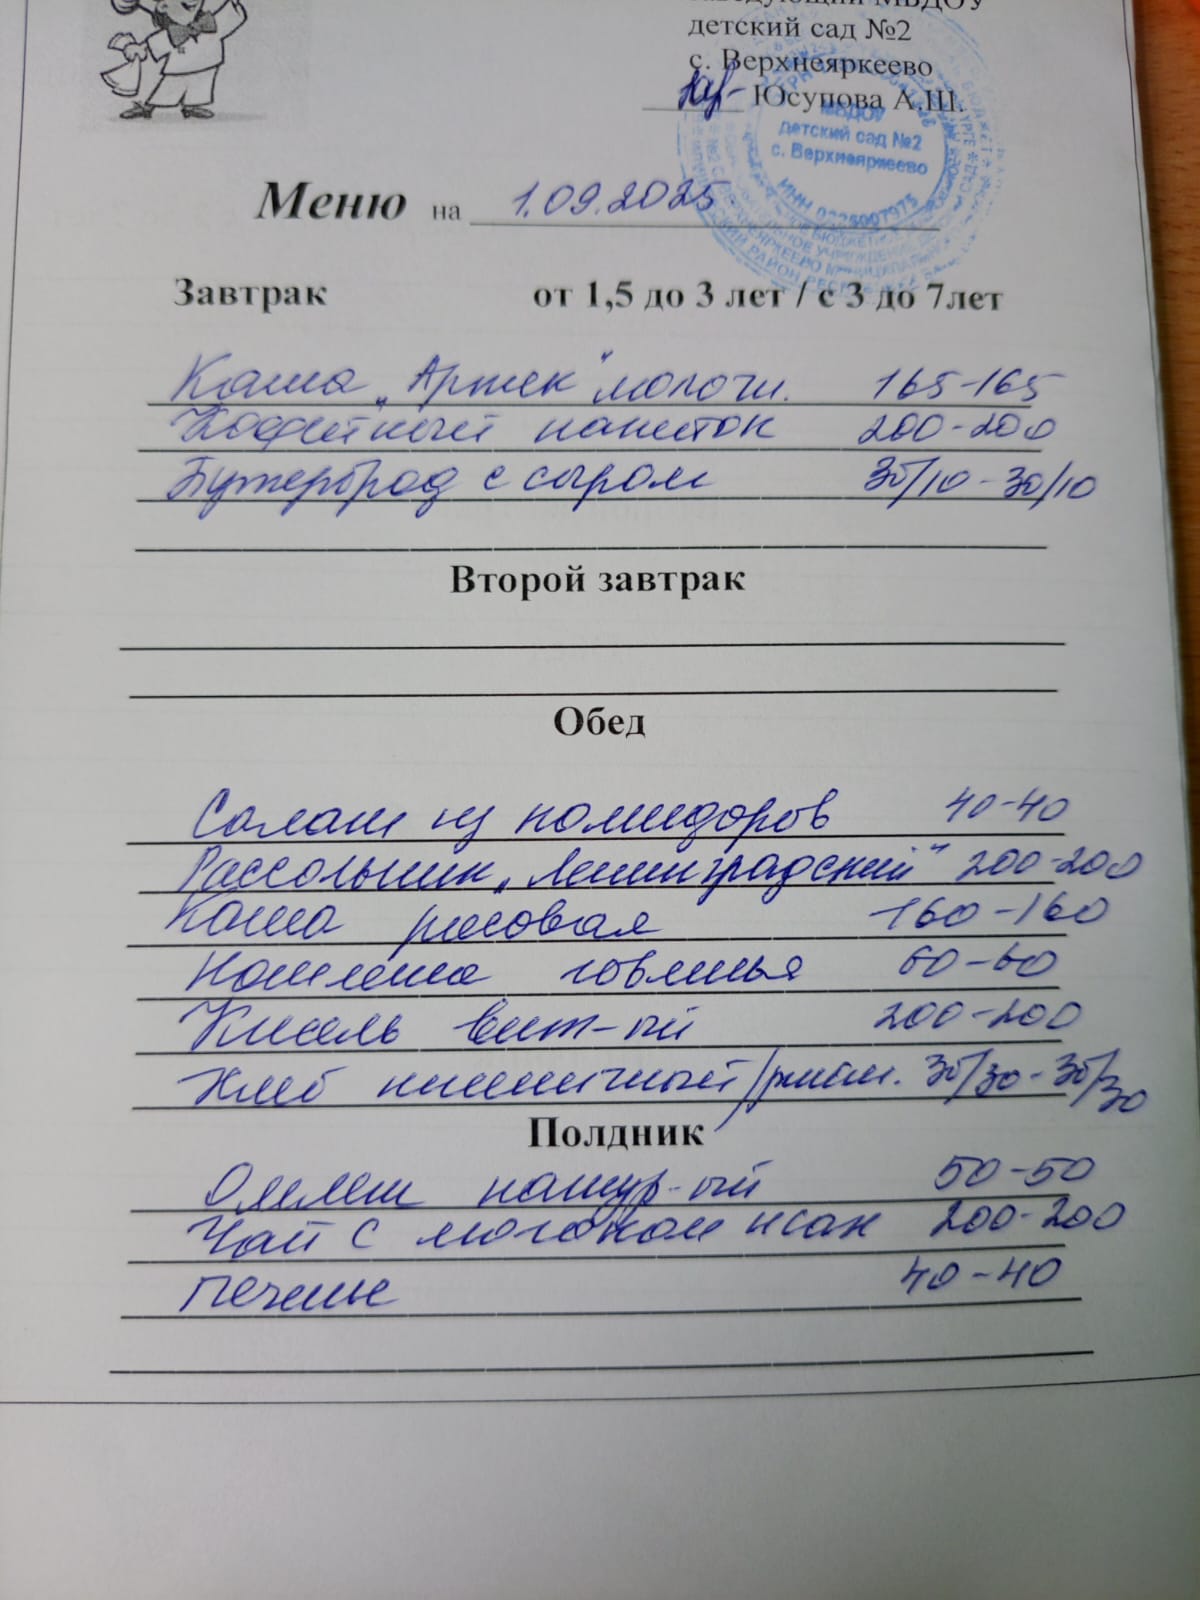 заведующий МБДОУ
детский сад №2
с. Верхнеяркеево
Юсупова А.Ш.
МБДОУ
детский сад №2
с. Верхнеяркеево
Меню на 1.09.2025
Завтрак от 1,5 до 3 лет / с 3 до 7лет
Каша „Артек" молочн. 165-165
Кофейный напиток 200-200
Бутерброд с сыром 30/10 - 30/10
Второй завтрак
Обед
Салат из помидоров 40-40
Рассольник „Ленинградский" 200-200
Каша рисовая 160-160
Котлета говяжья 60-60
Кисель вит-ый 200-200
Хлеб пшеничный/ржан. 30/30 - 30/30
Полдник
Омлет натур-ый 50-50
Чай с молоком и сах 200-200
Печенье 40-40